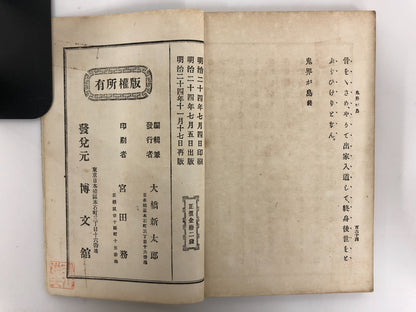 鬼界が島
骨をいさめやりて出家入道して終身後世をと
ぶらひけりとなん
鬼界が島 終
明治二十四年七月四日印刷
明治二十四年七月五日出版
明治二十四年十一月十七日再版
正價金拾二錢
版權所有
編輯兼
發行者
大橋新太郎
印刷者
宮田務
發兌元
博文館
東京日本橋區本石町三丁目十六番地